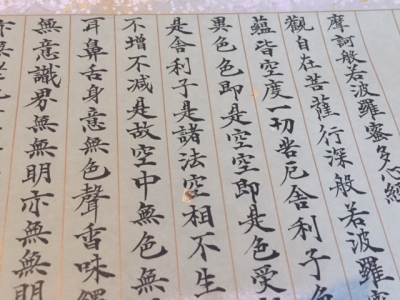 摩訶般若波羅蜜多心經
觀自在菩薩行深般若波羅
蘊皆空度一切苦厄舍利子色
異色色即是空空即是色受
是舍利子是諸法空相不生
不增不减是故空中無色無
耳鼻舌身意無色聲香味觸
無意識界無無明亦無無明